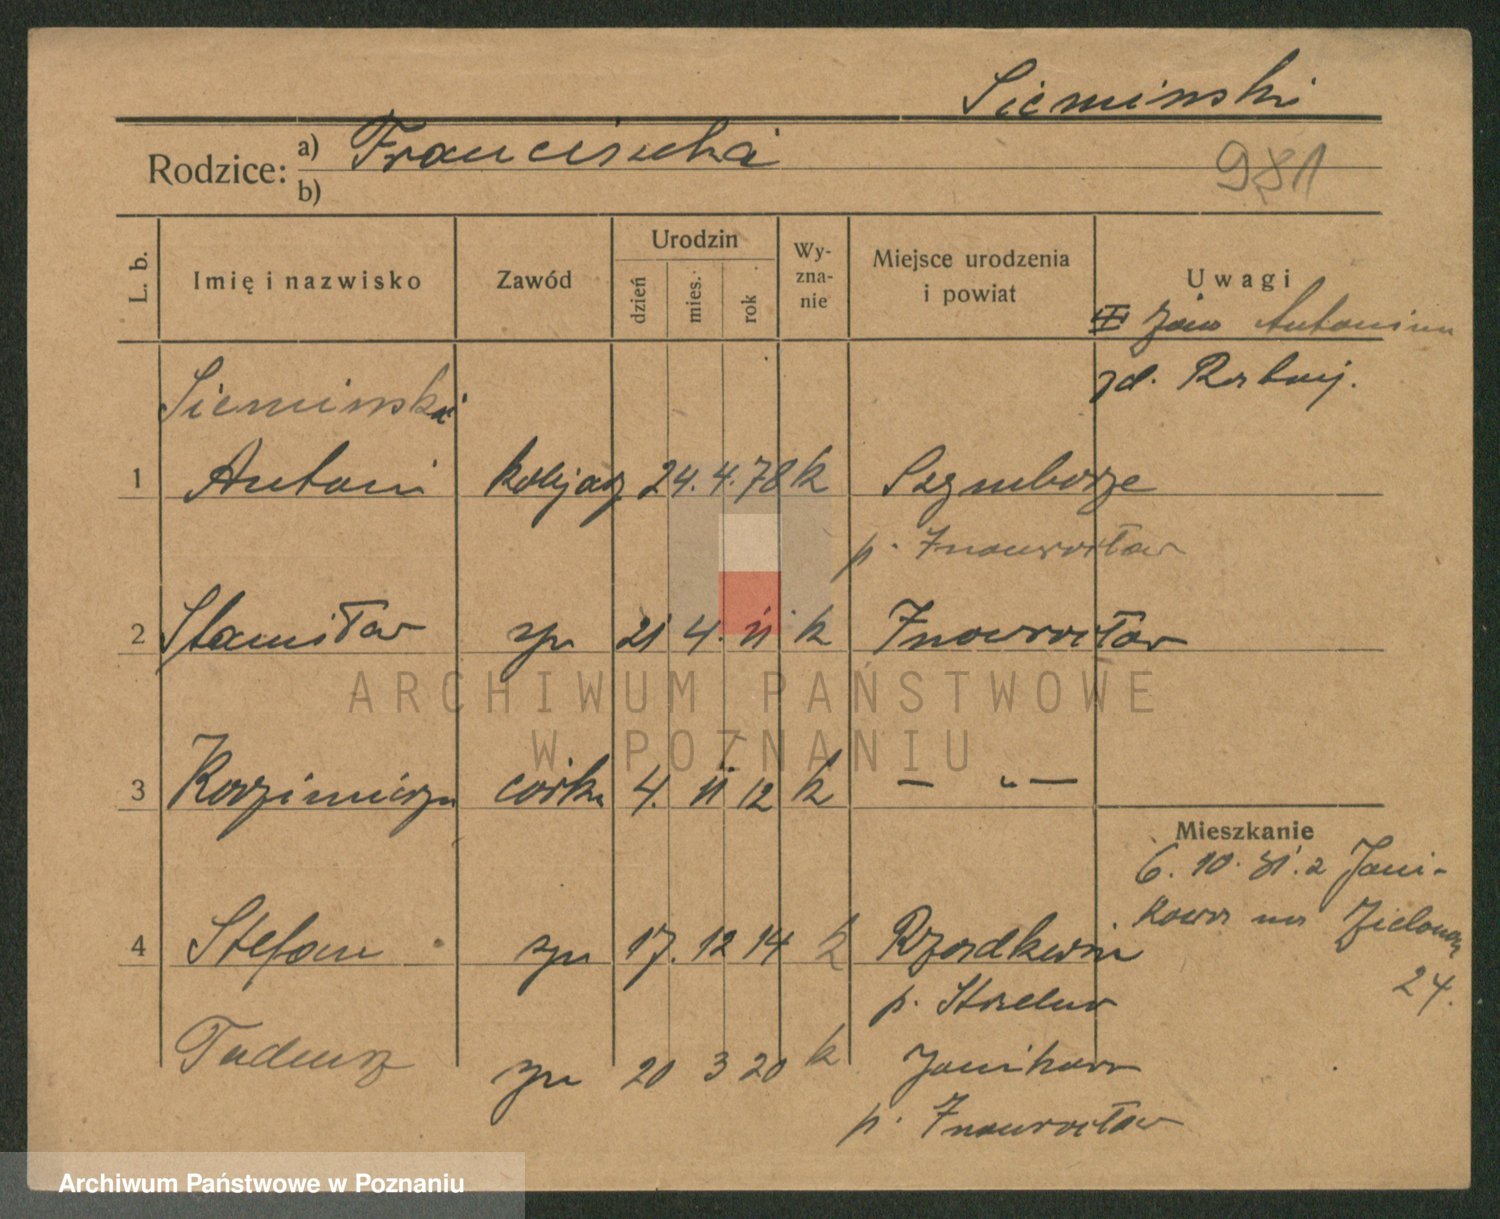 Sieminski
Rodzice: a) Franciszka
b)
981
L. b. Imię i nazwisko Zawód Urodzin dzień mies. rok Wy-zna-nie Miejsce urodzenia i powiat Uwagi
Antonina
zd.
Sieminski
1 Antoni kolejarz 24. 4. 78 k Szymborze
p. Inowrocław
2 Stanisław syn 21 4. 11 k Inowrocław
ARCHIWUM PAŃSTWOWE
W POZNANIU
3 Kazimiera córka 4. 11 12 k — " —
Mieszkanie
6. 10. 31. z Jani-
kowa na Zielona
24.
4 Stefan syn 17. 12 14 k Rzadkwin
p. Strzelno
Tadeusz syn 20 3 20 k Janikowo
p. Inowrocław
Archiwum Państwowe w Poznaniu